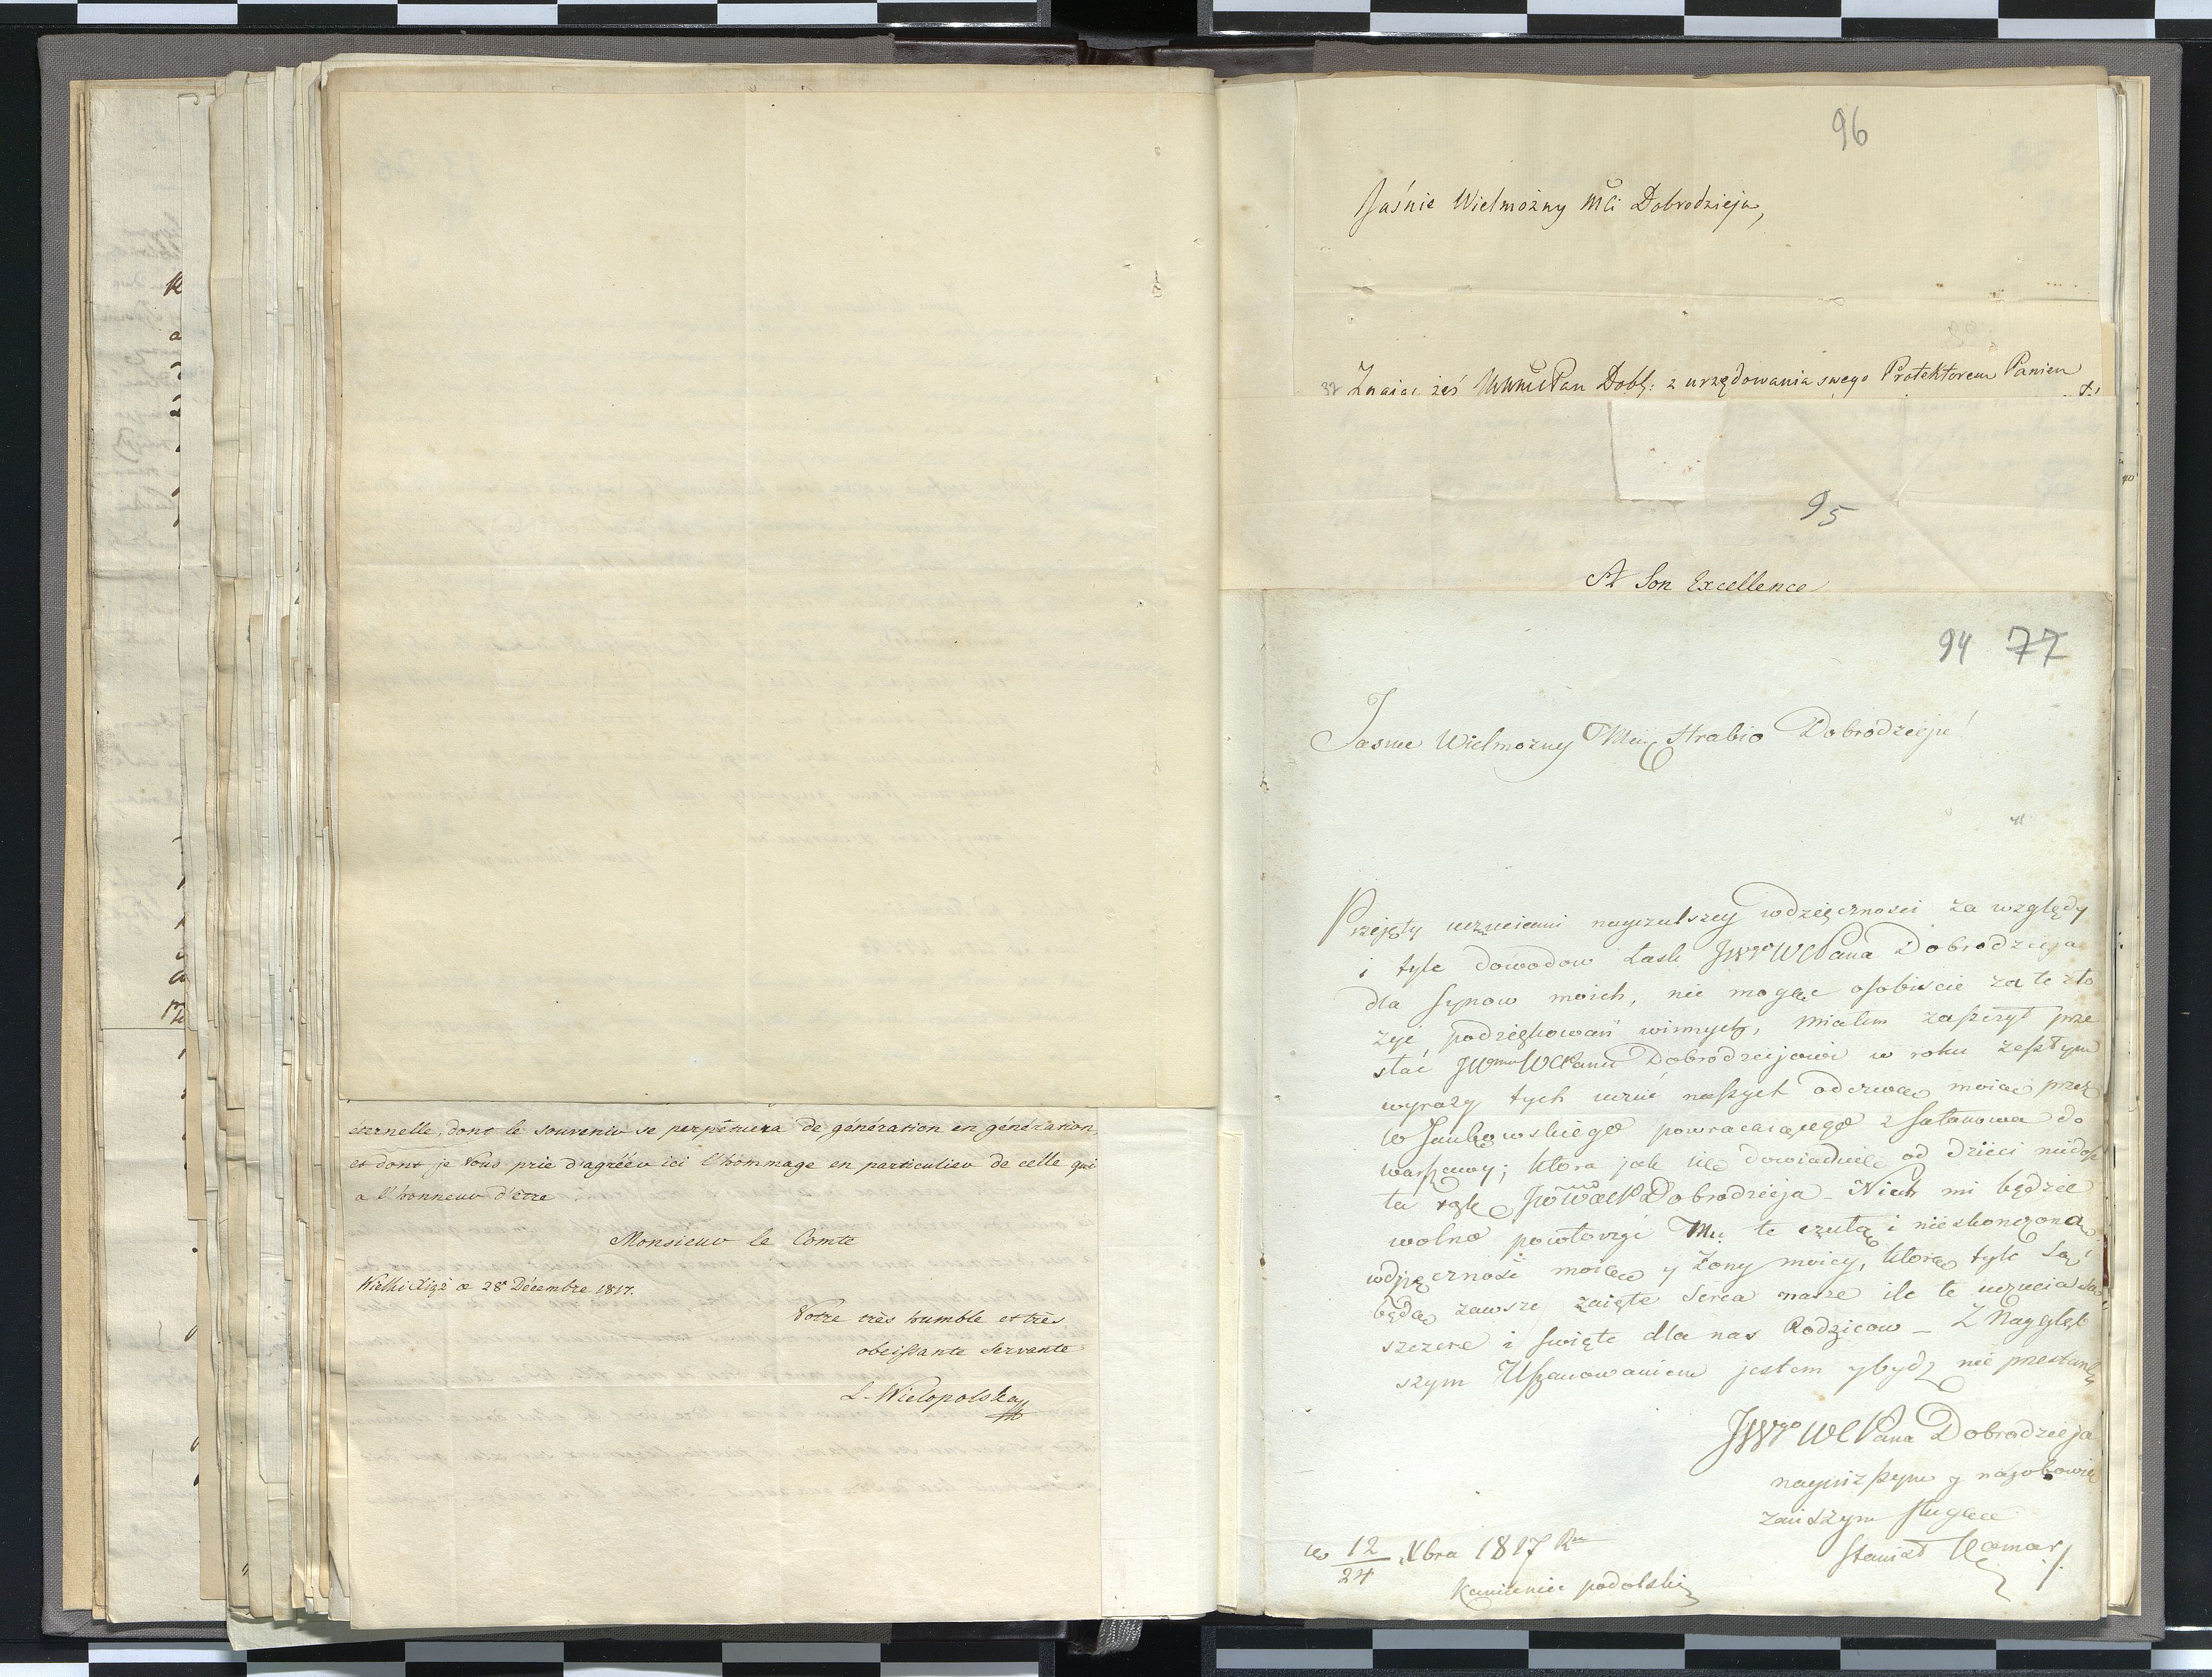 éternelle, dont le souvenir se perpétuera de génération en génération,
et dont je Vous prie d'agréer ici l'hommage en particulier de celle qui
a l'honneur d'être
Monsieur le Comte
Wielki Xiąż ce 28e Décembre 1817.
Votre très humble et très
obeissante Servante
L. Wielopolska
96
Jaśnie Wielmożny Mci Dobrodzieju,
37
Znaiąc żeś Pan Dobr: z urzędowania swego Protektorem Panien
95
A Son Excellence
94 77
Jasnie Wielmozny Mci Hrabio Dobrodzieju!
Przejęty uczuciami nayczulszey wdzięcznosci za względy
i tyle dowodow Łask JWgo WCPana Dobrodzieja
dla synow moich, nie mogąc osobiscie za te zło
żyć podziękowań winnych, miałem zaszczyt prze
słać JWmu WCPanu Dobrodziejowi w roku zeszłym
wyrazy tych uczuć naszych odezwą moią przez
W Jankowskiego powracaiącego z Satanowa do
Warszawy; ktora jak się dowiaduię od Dzieci niedosz
ła rąk Dobrodzieja - Niech mi będzie
wolno powtorzyć Mu te czułą i nieskonczoną
wdzięcznosć moią y Żony moiey, ktorą tyle są i
będą zawsze zaięte serca nasze ile te uczucia są
szczere i swięte dla nas Rodzicow - Z Naygłęb
szym Uszanowaniem jestem y bydz nie przestanę
JWgo WCPana Dobrodzieja
nayniższym y nayobowią
zańszym sługą
Stanisł
w 12/24 Xbra 1817 Ru
Kamieniec podolski